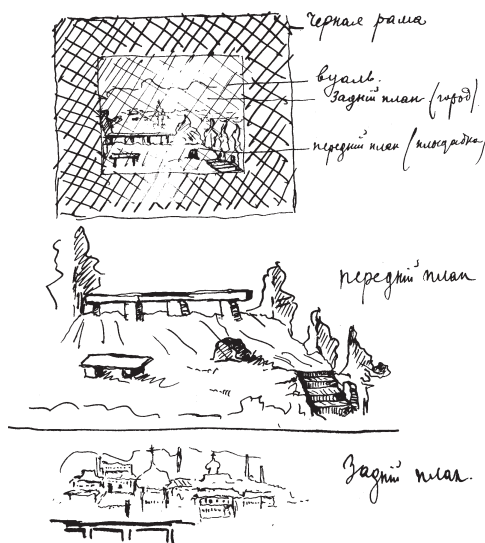 Черная рама
вуаль.
Заднiй план (город)
переднiй план (площадка)
переднiй план
Заднiй план.